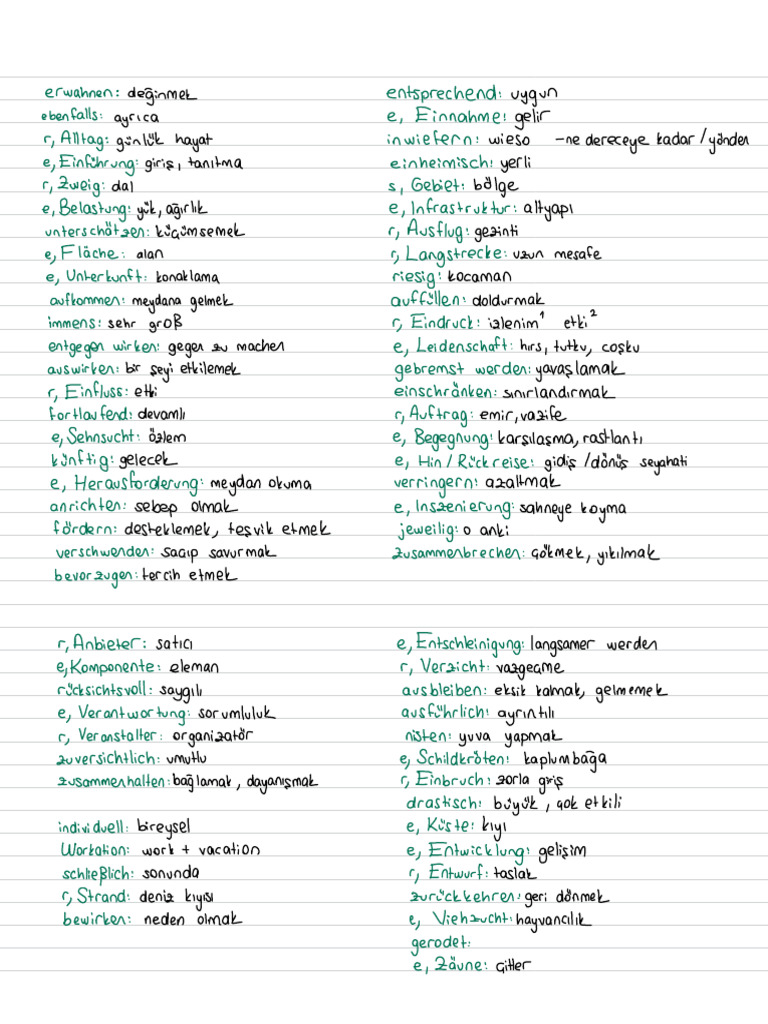 erwahnen: değinmek
ebenfalls: ayrıca
r, Alltag: günlük hayat
e, Einführung: giriş, tanıtma
r, Zweig: dal
e, Belastung: yük, ağırlık
unterschätzen: küçümsemek
e, Fläche: alan
e, Unterkunft: konaklama
aufkommen: meydana gelmek
immens: sehr groß
entgegen wirken: gegen zu machen
auswirken: bir şeyi etkilemek
r, Einfluss: etki
fortlaufend: devamlı
e, Sehnsucht: özlem
künftig: gelecek
e, Herausforderung: meydan okuma
anrichten: sebep olmak
fördern: desteklemek, teşvik etmek
verschwenden: saçıp savurmak
bevorzugen: tercih etmek
entsprechend: uygun
e, Einnahme: gelir
inwiefern: wieso -ne dereceye kadar / yönden
einheimisch: yerli
s, Gebiet: bölge
e, Infrastruktur: altyapı
r, Ausflug: gezinti
r, Langstrecke: uzun mesafe
riesig: kocaman
auffüllen: doldurmak
r, Eindruck: izlenim¹ etki²
e, Leidenschaft: hırs, tutku, coşku
gebremst werden: yavaşlamak
einschränken: sınırlandırmak
r, Auftrag: emir, vazife
e, Begegnung: karşılaşma, rastlantı
e, Hin / Rückreise: gidiş / dönüş seyahati
verringern: azaltmak
e, Inszenierung: sahneye koyma
jeweilig: o anki
zusammenbrechen: çökmek, yıkılmak
r, Anbieter: satıcı
e, Komponente: eleman
rücksichtsvoll: saygılı
e, Verantwortung: sorumluluk
r, Veranstalter: organizatör
zuversichtlich: umutlu
zusammenhalten: bağlamak, dayanışmak
individuell: bireysel
Workation: work + vacation
schließlich: sonunda
r, Strand: deniz kıyısı
bewirken: neden olmak
e, Entschleinigung: langsamer werden
r, Verzicht: vazgeçme
ausbleiben: eksik kalmak, gelmemek
ausführlich: ayrıntılı
nisten: yuva yapmak
e, Schildkröten: kaplumbağa
r, Einbruch: zorla giriş
drastisch: büyük, çok etkili
e, Küste: kıyı
e, Entwicklung: gelişim
r, Entwurf: taslak
zurückkehren: geri dönmek
e, Viehzucht: hayvancılık
gerodet:
e, Zäune: Çitler